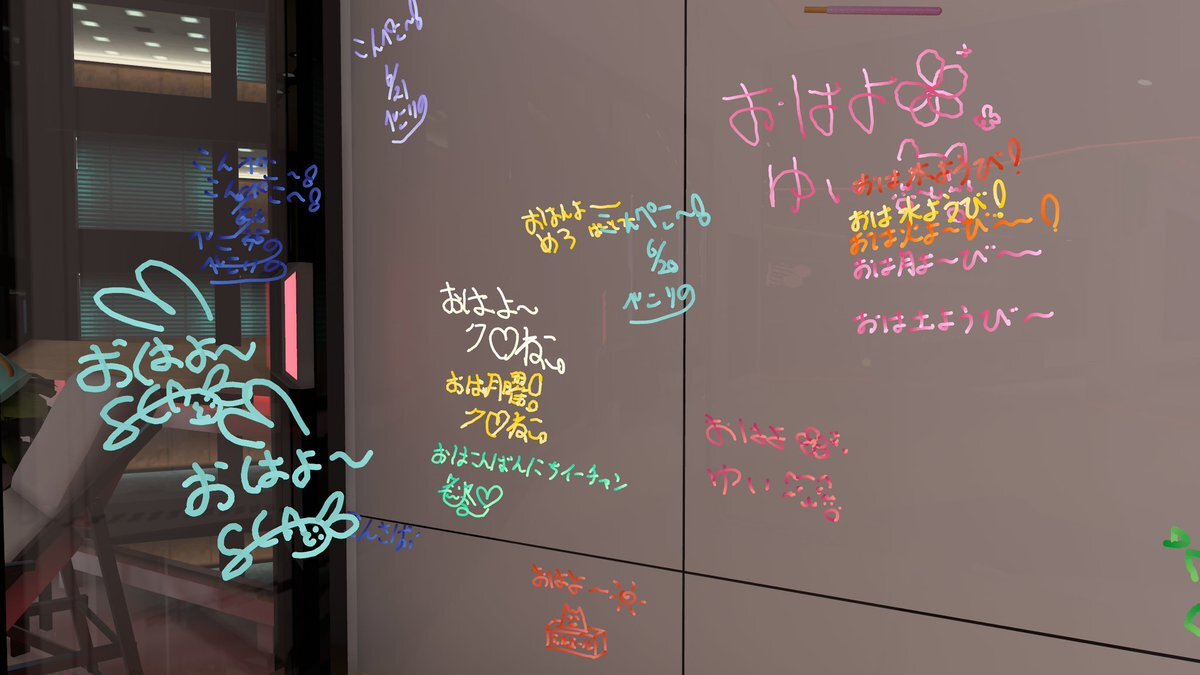 こんぺこ〜!
6/21
ぺこりの
おはよ
ゆい
おは水ようび!
おは水ようび!
おは火よ〜び〜!
おは月よ〜び〜
おは土ようび〜
こんぺこ〜!
こんぺこ〜!
ぺこりの
おはんよー
めろ
こんぺこ〜!
6/20
ぺこりの
おはよ〜
ク♡ねこ。
おは月曜!
ク♡ねこ。
おはこんばんにちイーチャン
おはよ〜
おはよ〜
おはよ
ゆい
おはよー